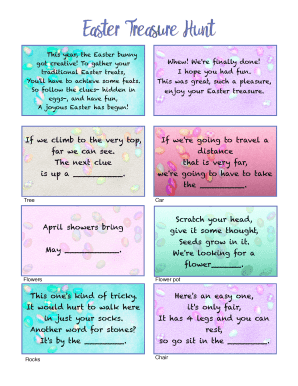 Easter Treasure Hunt
This year, the Easter bunny
got creative! To gather your
traditional Easter treats,
You'll have to achieve some feats.
So follow the clues- hidden in
eggs-, and have fun,
A joyous Easter has begun!
Whew! We're finally done!
I hope you had fun.
This was great, such a pleasure,
enjoy your Easter treasure.
If we climb to the very top,
far we can see.
The next clue
is up a __________.
Tree
If we're going to travel a
distance
that is very far,
we're going to have to take
the __________.
Car
April showers bring
May __________.
Flowers
Scratch your head,
give it some thought,
Seeds grow in it.
We're looking for a
flower______.
Flower pot
This one's kind of tricky.
It would hurt to walk here
in just your socks.
Another word for stones?
It's by the ________.
Rocks
Here's an easy one,
it's only fair,
It has 4 legs and you can
rest,
so go sit in the ________.
Chair